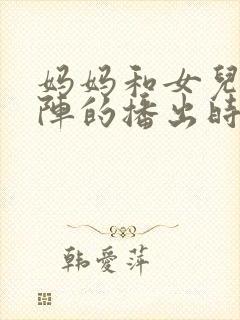 妈妈和女兒
陣的播出時
韩愛萍